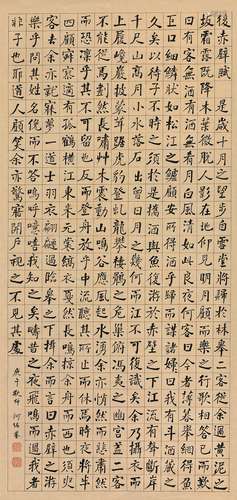 後赤壁賦 是歲十月之望步自雪堂將歸於臨皋二客從余過黃泥之
坂霜露既降木葉盡脫人影在地仰見明月顧而樂之行歌相答已而歎
曰有客無酒有酒無肴月白風清如此良夜何客曰今者薄暮舉網得魚
巨口細鱗狀如松江之鱸顧安所得酒乎歸而謀諸婦婦曰我有斗酒藏之
久矣以待子不時之須於是攜酒與魚復游於赤壁之下江流有聲斷岸
千尺山高月小水落石出曾日月之幾何而江山不可復識矣余乃攝衣而
上履巉巖披蒙茸踞虎豹登虬龍攀棲鶻之危巢俯馮夷之幽宮蓋二客
不能從焉劃然長嘯草木震動山鳴谷應風起水涌余亦悄然而悲肅然
而恐凜乎其不可留也反而登舟放乎中流聽其所止而休焉時夜將半
四顧寂寥適有孤鶴橫江東來玄裳縞衣戛然長鳴掠余舟而西也須臾
客去余亦就睡夢一道士羽衣翩躚過臨皋之下揖余而言曰赤壁之遊
樂乎問其姓名俛而不答嗚呼噫嘻我知之矣疇昔之夜飛鳴而過我者
非子也耶道人顧笑余亦驚寤開戶視之不見其處
庚午秋 何紹基